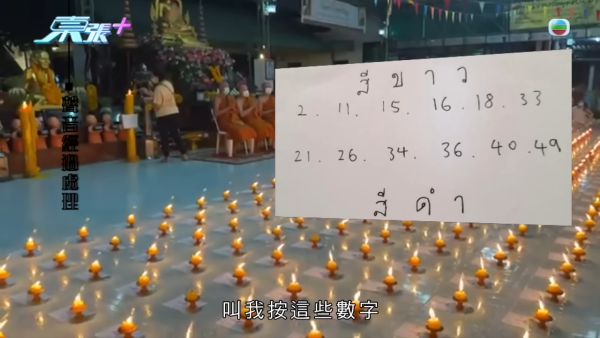 東張+
聲音經過處理
สีขาว
2. 11. 15. 16. 18. 33
21. 26. 34. 36. 40. 49
สีดำ
叫我按這些數字